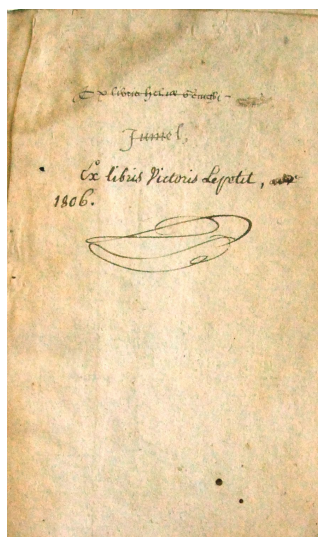 Ex libris
Jumel,
Ex libris Victoris Lepetit,
1806.